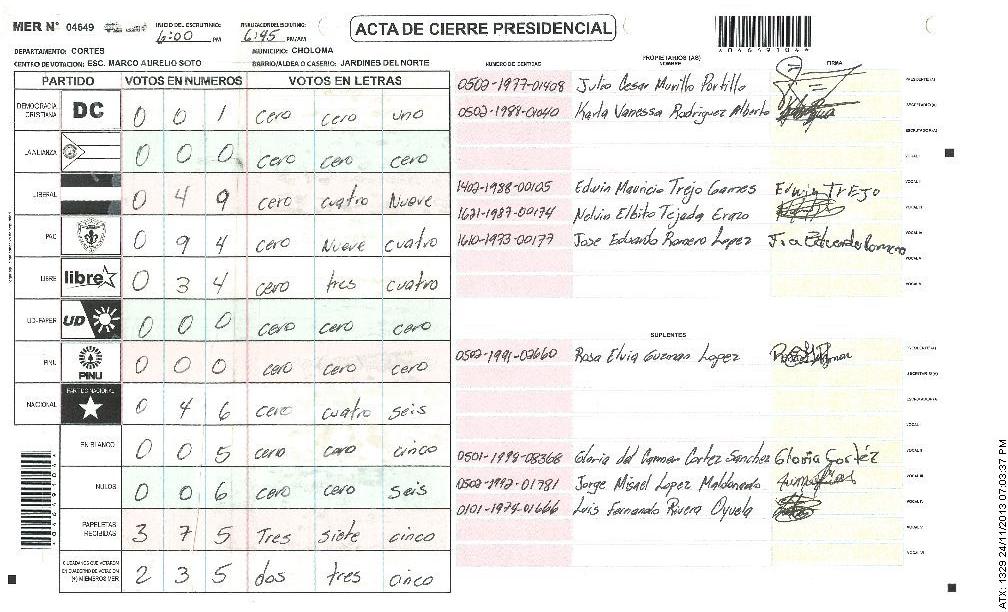 MER N° 04649 INICIO DEL ESCRUTINIO: 6:00 PM FINALIZACION ESCRUTINIO: 6:45 PM/AM
ACTA DE CIERRE PRESIDENCIAL
DEPARTAMENTO: CORTES MUNICIPIO: CHOLOMA
CENTRO DE VOTACION: ESC. MARCO AURELIO SOTO BARRIO/ALDEA O CASERIO: JARDINES DEL NORTE
PARTIDO VOTOS EN NUMEROS VOTOS EN LETRAS
DEMOCRACIA CRISTIANA DC 0 0 1 cero cero uno
LA ALIANZA 0 0 0 cero cero cero
LIBERAL 0 4 9 cero cuatro Nueve
PAC 0 9 4 cero Nueve cuatro
LIBRE libre 0 3 4 cero tres cuatro
UD-FAPER UD 0 0 0 cero cero cero
PINU PINU 0 0 0 cero cero cero
NACIONAL PARTIDO NACIONAL 0 4 6 cero cuatro seis
EN BLANCO 0 0 5 cero cero cinco
NULOS 0 0 6 cero cero seis
PAPELETAS RECIBIDAS 3 7 5 Tres siete cinco
CIUDADANOS QUE VOTARON EN CUADERNO DE VOTACION (+) MIEMBROS MER 2 3 5 dos tres cinco
PROPIETARIOS (AS)
NUMERO DE IDENTIDAD NOMBRE FIRMA
0502-1977-01408 Julio Cesar Murillo Portillo PRESIDENTE(A)
0502-1988-01040 Karla Vanessa Rodriguez Alberto SECRETARIO(A)
ESCRUTADOR(A)
VOCAL I
1402-1988-00105 Edwin Mauricio Trejo Games Edwin TREJO VOCAL II
1621-1987-00174 Nelvin Elbito Tejada Erazo VOCAL III
1610-1973-00177 Jose Eduardo Romero Lopez Jose Eduardo Romero VOCAL IV
VOCAL V
SUPLENTES
0502-1991-02660 Rosa Elvia Guzman Lopez PRESIDENTE(A)
SECRETARIO(A)
ESCRUTADOR(A)
VOCAL I
0501-1998-08368 Gloria del Carmen Cortez Sanchez Gloria Cortéz VOCAL II
0502-1992-01781 Jorge Misael Lopez Maldonado VOCAL III
0101-1974-01666 Luis Fernando Rivera Oyuela VOCAL IV
VOCAL V
VOCAL VI
ATX: 1329 24/11/2013 07:03:37 PM